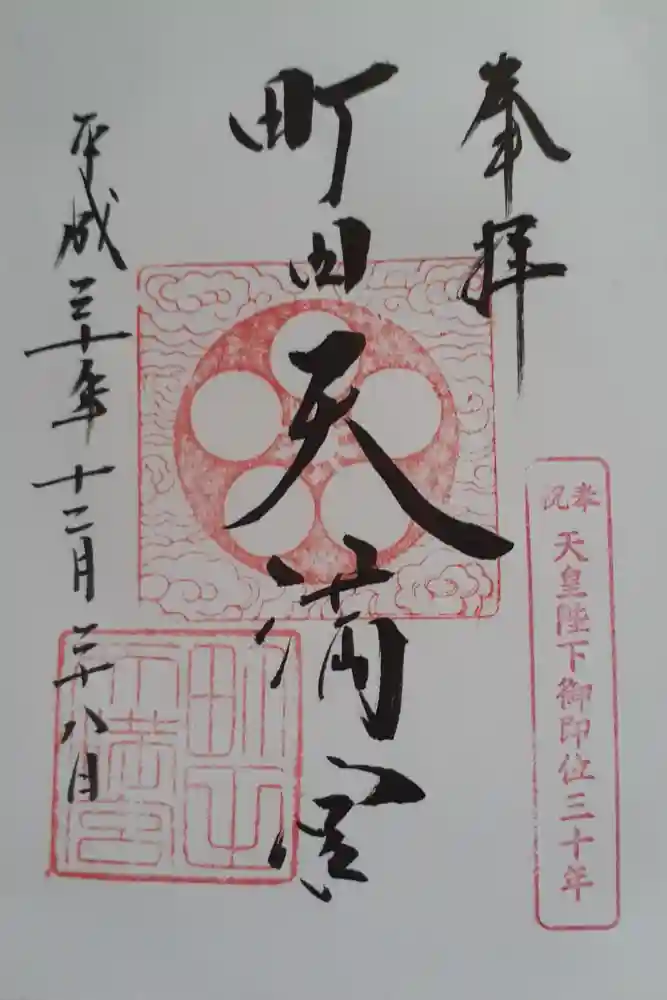 奉拝
奉祝
天皇陛下御即位三十年
町田天満宮
平成三十年十二月二十八日
町田
天満宮